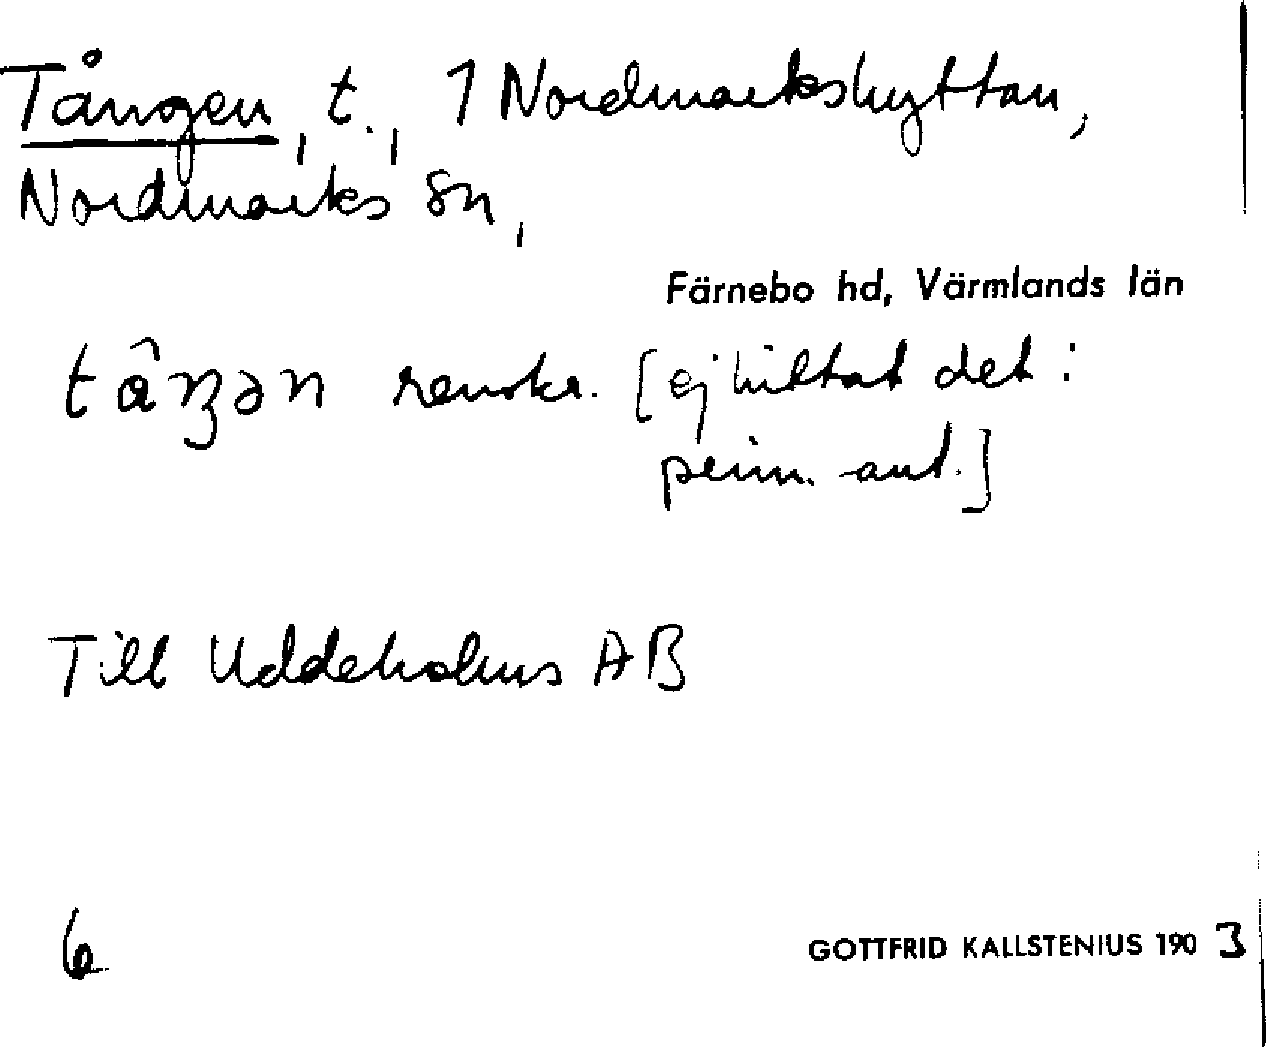 Tången, t., 1 Nordmarkshyttan,
Nordmarks sn,
Färnebo hd, Värmlands län
tâŋən renskr. [ej hittat det i
prim. ant.]
Till Uddeholms AB
6
GOTTFRID KALLSTENIUS 1903